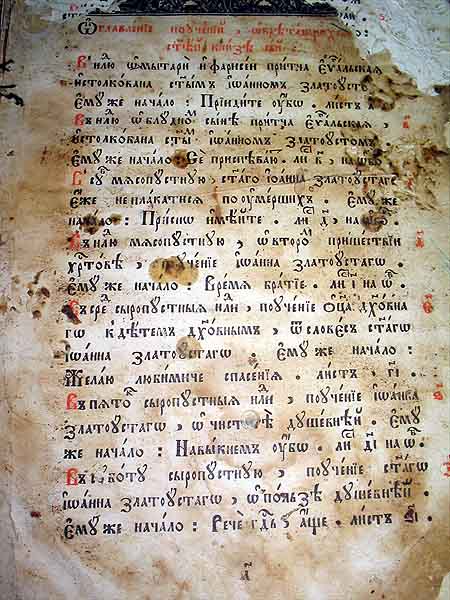 Ѡглавленїе поученїй , ѡбрѣтающихсѧ
стѣй книзѣ сей .
Въ н҃лю ѡ мытари и фарисеи притча еѵ҃льская
истолкована ст҃ымъ іѡанномъ златоусто
емꙋже начало : Прїидите оубѡ . листъ а
Въ н҃лю ѡ блудномъ сынѣ притча еѵ҃льская ,
истолкована ст҃ы іѡанномъ златоустомъ
емꙋже начало : Се приспѣваю . ли в , на ѡбо
В су мясопустную , ст҃аго іѡанна златоустаго
еже не плакатися по умершихъ . емꙋже
начало : Прїсиѡ имѣите . ли д , на ѡ
Въ н҃лю мясопустную , ѡ второ пришествїи
хр҃товѣ , поученїе іѡанна златоустагѡ .
емꙋже начало : Время братїе . ли і на ѡ .
Въ сре сыропустныя н҃ли , поученїе ѻц҃а дх҃овна
гѡ к дѣтемъ дх҃овнымъ , ѿ словесъ ст҃агѡ
іѡанна златоустагѡ . емꙋ же начало :
Желаю любимиче спасенїя . листъ г҃і .
Въ пято сыропустныя н҃ли , поученїе іѡанна
златоустагѡ , ѡ чистотѣ душевнѣй . емꙋ
же начало : Навыкнемъ оубѡ . ли д҃і на ѡ .
Въ субботу сыропустную , поученїе ст҃агѡ
іѡанна златоустагѡ , ѡ полѕѣ душевнѣй .
емꙋ же начало : Рече гд҃ь , аще . листъ ѕ҃і .
а